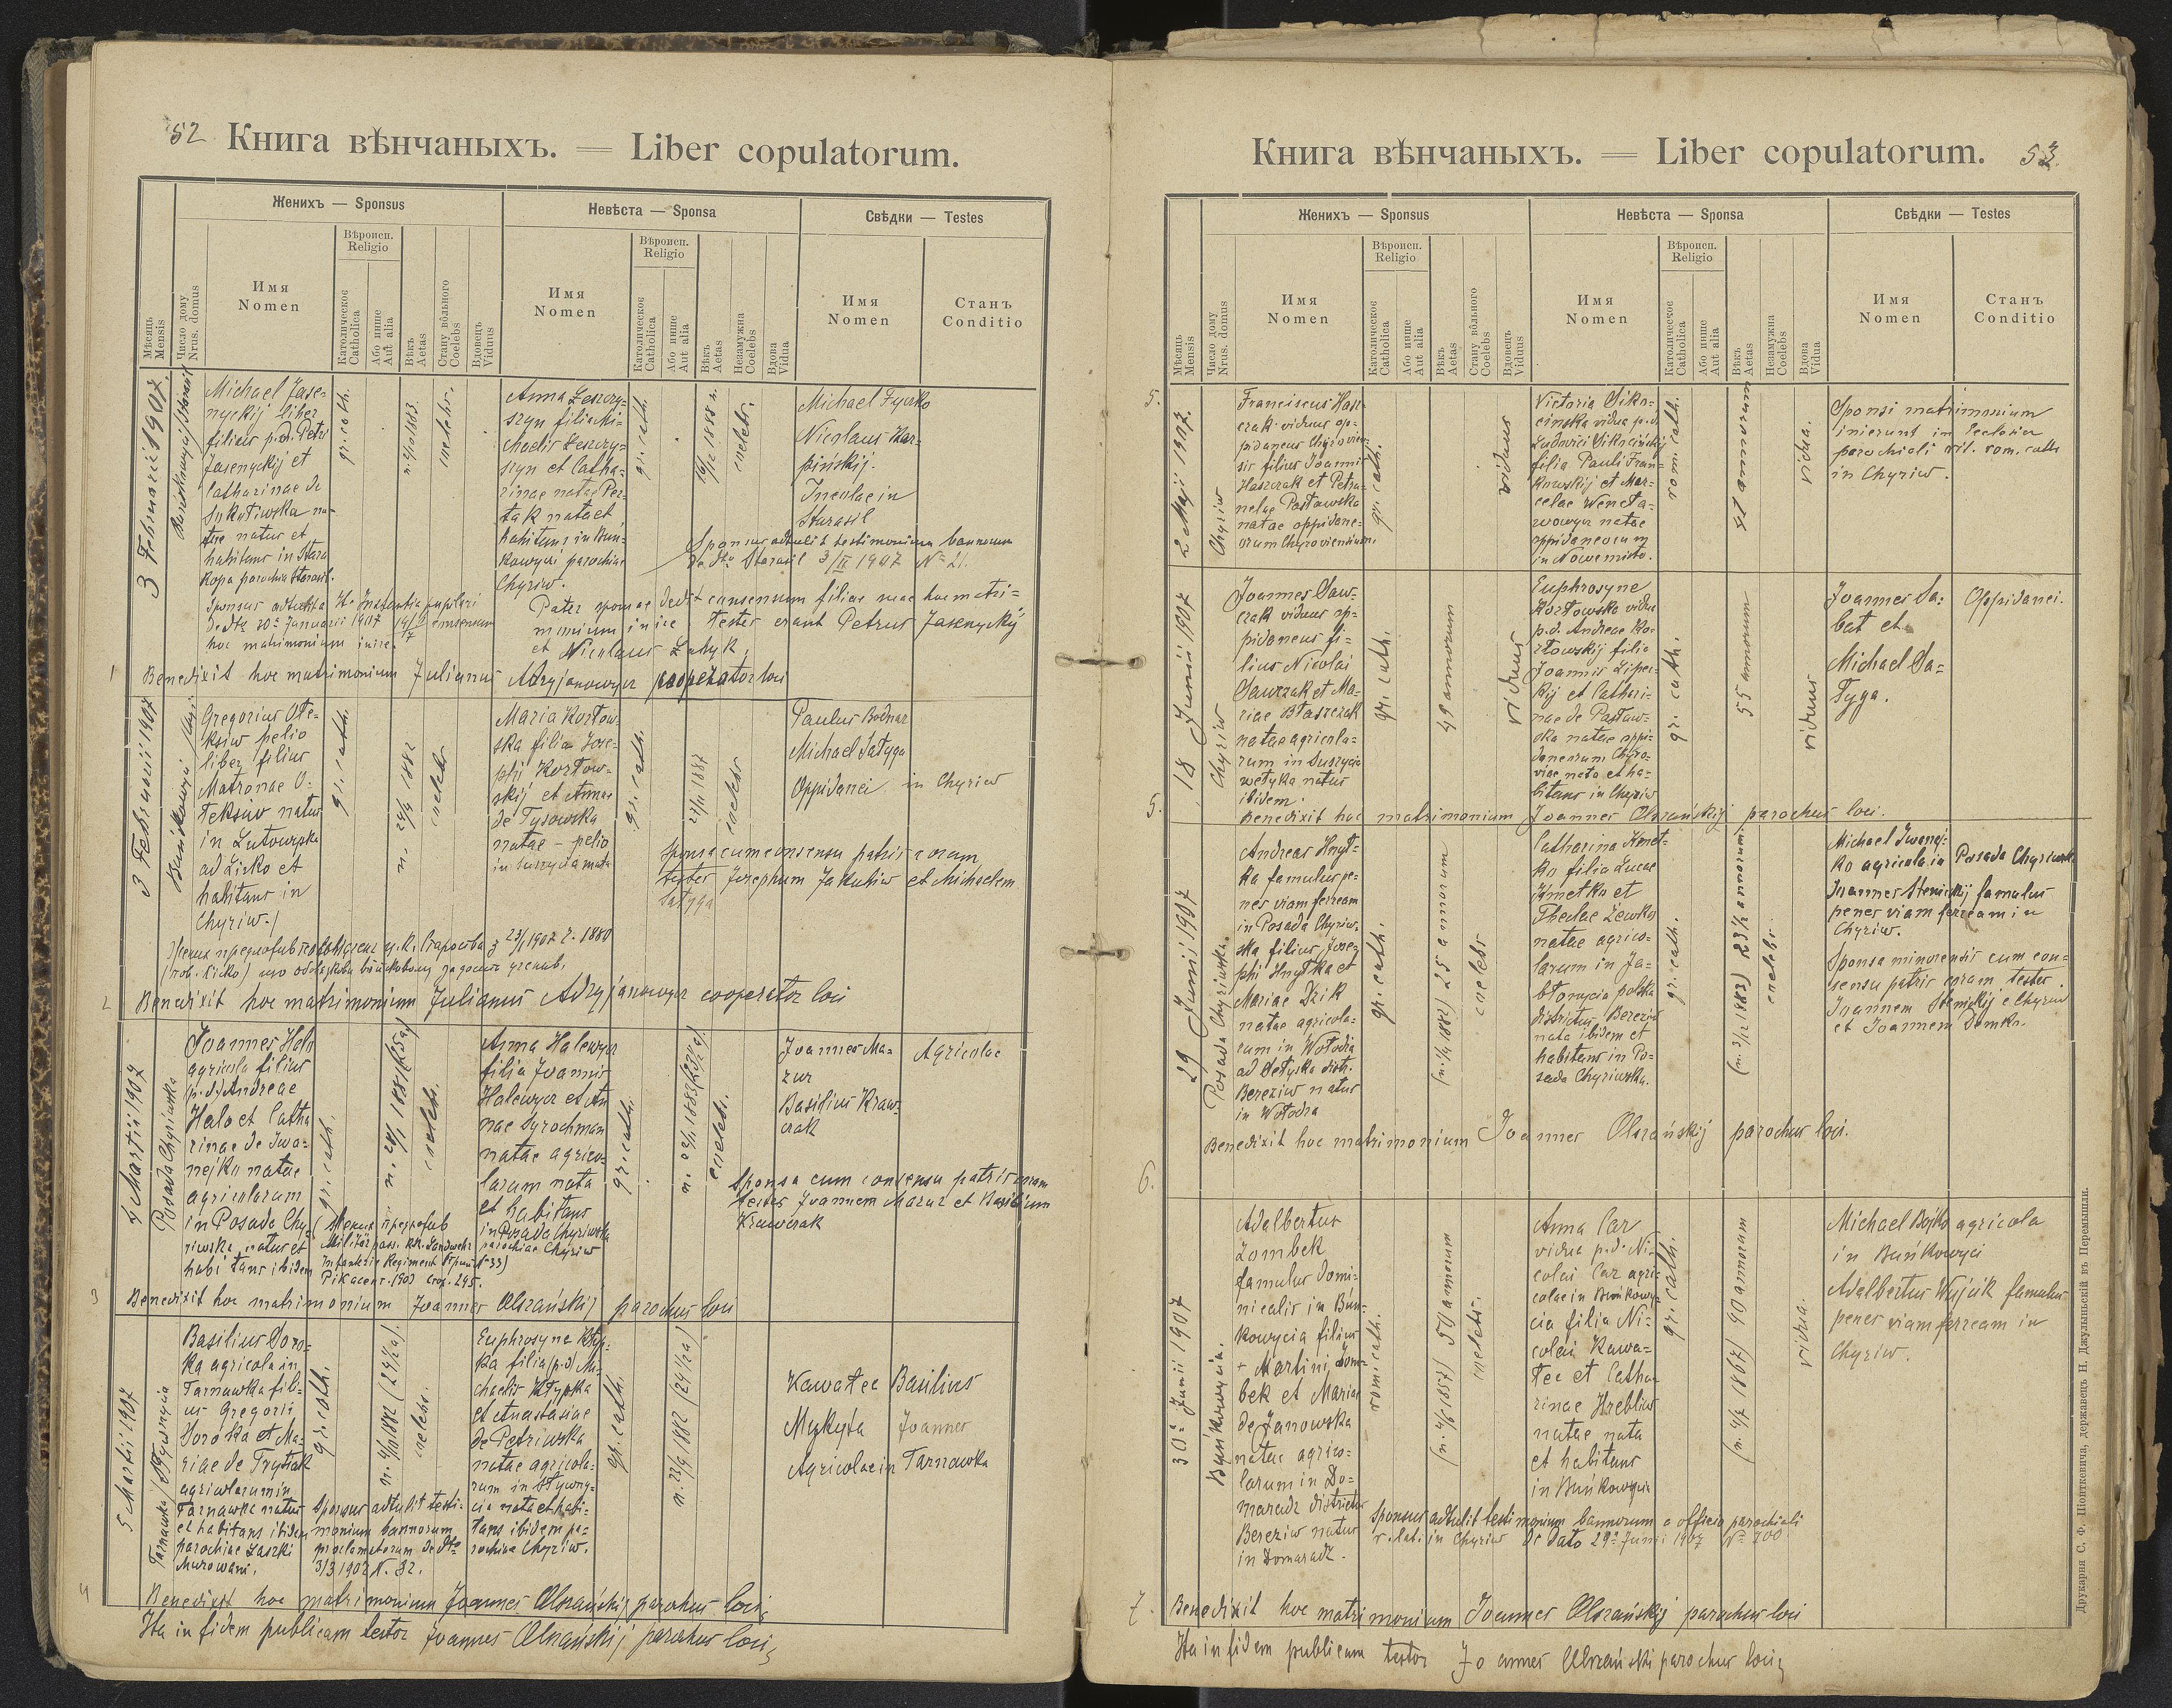 52 Книга вѣнчаныхъ. — Liber copulatorum.
Женихъ — Sponsus
Невѣста — Sponsa
Свѣдки — Testes
Мѣсяць Mensis
Число дому Nrus. domus
Имя Nomen
Вѣроисп. Religio
Католическое Catholica
Або инше Aut alia
Вѣкъ Aetas
Стану вôльного Coelebs
Вдовець Viduus
Имя Nomen
Вѣроисп. Religio
Католическое Catholica
Або инше Aut alia
Вѣкъ Aetas
Незамужна Coelebs
Вдова Vidua
Имя Nomen
Станъ Conditio
3 Februarii 1907.
Michael Jase-
nyckij liber
filius p.d. Petri
Jasenyckij et
Catharinae de
natus et
habitans in Stara
Kopa parochia Starasil.
gr. cath.
coelebs.
Anna Leszczy-
szyn filia Mi-
chaelis Leszczy-
szyn et Catha-
rinae natae Per-
tak nata et
habitans in Bun-
kowyci parochiae
Chyriw.
gr. cath.
16/12 1888 n.
coelebs.
Michael Fyczko
Nicolaus Kar-
pińskij.
Incolae in
Starasil
Sponsus adtulit testimonium bannorum
de dto Starasil 3/II 1907 No 21.
hoc matrimonium inire.
Pater sponsae dedit consensum filiae suae hoc matri=
monium inire testes erant Petrus Jasenyckij
et Nicolaus Łatyk,
1 Benedixit hoc matrimonium Julianus Adryjanowycz cooperator loci
3 Februarii 1907
Gregorius Ole-
ksiw pelio
liber filius
Matronae O-
leksiw natus
in Lutowyska
ad Lisko et
habitans in
Chyriw.
gr. cath.
coelebs
Maria Kozłow-
ska filia Jose-
phi Kozłow-
skij et Annae
de Tysowska
natae - pelio
gr. cath.
coelebs
Paulus Bodnar
Michael Sałyga
Oppidanei in Chyriw
Sponsa cum consensu patris coram
testes Josephum Jakutiw et Michaelem
Sałyga
2 Benedixit hoc matrimonium Julianus Adryjanowycz cooperator loci
4 Martii 1907
Posada Chyriwska
Joannes Hale
agricola filius
p.d. Andreae
Hala et Catha
rinae de Iwa-
nejko natae
agricolarum
in Posada Chy-
riwska natus et
habitans ibidem
gr. cath.
coelebs.
Anna Halewycz
filia Joannis
Halewycz et An
nae Syrochman
natae agrico-
larum nata
et habitans
in Posada Chyriwska
parochiae Chyriw
gr. cath.
coelebs.
Joannes Ma-
zur
Basilius Kraw-
czak
Agricolae
Sponsa cum consensu patris coram
testes Joannem Mazur et Basilium
Krawczak
3 Benedixit hoc matrimonium Joannes Olszańskij parochus loci
5 Martii 1907
Basilius Doro-
ka agricola in
Tarnawka fili-
us Gregorii
Doroka et Ma-
riae de Trytiak
agricolarum in
Tarnawka natus
et habitans ibidem
parochiae Laszki
Murowani.
gr. cath.
coelebs.
Sponsus adtulit testi-
monium bannorum
proclamatorum de dto
3/3 1907 N. 32.
Euphrosyne Kłyp-
ka filia (p.d) Mi-
chaelis Kłypka
et Anastasiae
de Petriwska
natae agricola-
rum in Sływny-
cia nata et habi-
tans ibidem pa-
rochiae Chyriw.
gr. cath.
n. 22/9 1882 (24 1/2 a)
Kawałec Basilius
Mykyta Joannes
Agricolae in Tarnawka
4 Benedixit hoc matrimonium Joannes Olszańskij parochus loci,
Ita in fidem publicam testor Joannes Olszańskij parochus loci,
Книга вѣнчаныхъ. — Liber copulatorum. 53.
Женихъ — Sponsus
Невѣста — Sponsa
Свѣдки — Testes
Мѣсяць Mensis
Число дому Nrus. domus
Имя Nomen
Вѣроисп. Religio
Католическое Catholica
Або инше Aut alia
Вѣкъ Aetas
Стану вôльного Coelebs
Вдовець Viduus
Имя Nomen
Вѣроисп. Religio
Католическое Catholica
Або инше Aut alia
Вѣкъ Aetas
Незамужна Coelebs
Вдова Vidua
Имя Nomen
Станъ Conditio
5.
2 Maji 1907.
Chyriw
Franciscus Hasz-
czak viduus op-
pidaneus Chyrovien-
sis filius Joannis
Haszczak et Petro-
nelae Pasławska
natae oppidane-
orum Chyroviensium.
gr. cath.
viduus
Victoria Siko-
cinska vidua p.d.
Ludovici
filia Pauli Fran-
kowskij et Mar-
celae Weneta-
wowycz natae
oppidaneorum
in Nowemiasto.
rom. cath.
51 annorum
vidua.
Sponsi matrimonium
inierunt in Ecclesia
parochiali rit. rom. cath
in Chyriw.
18 Junii 1907
Chyriw
Joannes Saw-
czak viduus op-
pidaneus fi-
lius Nicolai
Sawczak et Ma-
riae Błaszczak
natae agricola-
rum in Suszycia
wełyka natus
ibidem.
gr. cath.
49 annorum
viduus
Euphrosyne
Kozłowska vidua
p.d. Andreae Ko-
złowskij filia
Joannis Lipec-
kij et Cathari-
nae de Pasław-
ska natae oppi-
daneorum Chyro-
viae nata et ha-
bitans in Chyriw
gr. cath.
55 annorum
viduus
Joannes Sa-
bat et
Michael Sa-
łyga.
Oppidanei.
5. Benedixit hoc matrimonium Joannes Olszańskij parochus loci.
29 Junii 1907
Posada Chyriwska.
Andreas Hnyt-
ka famulus pe-
nes viam ferream
in Posada Chyriw-
ska filius Jose-
phi Hnytka et
Mariae Dzik
natae agricola-
rum in Wołodia
ad Sełyska distr.
Bereziw natus
in Wołodia
gr. cath.
25 annorum
coelebs
Catharina Kmet-
ko filia Lucae
Kmetko et
Theclae Lewko
natae agrico-
larum in Ja-
błonycia polska
districtus Bereziw
nata ibidem et
habitans in Po-
sada Chyriwska.
gr. cath.
23 1/2 annorum
coelebs.
Michael Iwanej-
ko agricola in Posada Chyriwska
Joannes Stenickij famulus
penes viam ferream in
Chyriw.
Sponsa minorensis cum con-
sensu patris coram testes
Joannem Stenickij e Chyriw
et Joannem Domko.
Benedixit hoc matrimonium Joannes Olszańskij parochus loci.
6.
30 Junii 1907
Buńkowycia.
Adalbertus
Zombek
famulus domi-
nicalis in Buń-
kowycia filius
+ Martini Zom-
bek et Mariae
de Janowska
natae agrico-
larum in Do-
maradz districtus
Bereziw natus
in Domaradz.
rom. cath.
50 annorum
coelebs.
Anna Car
vidua p.d. Ni-
colai Car agri-
colae in Buńkowy-
cia filia Ni-
colai Kawa-
łec et Catha-
rinae Hrebliw
natae nata
et habitans
in Buńkowycia
gr. cath.
vidua.
Michael Bojko agricola
in Buńkowyci
Adalbertus Wujcik famulus
penes viam ferream in
Chyriw.
Sponsus adtulit testimonium bannorum a officio parochiali
r. lat. in Chyriw de dato 29 Junii 1907 No 700
7. Benedixit hoc matrimonium Joannes Olszańskij parochus loci
Ita in fidem publicam testor Joannes Olszańskij parochus loci,
Друкарня С. Ф. Піонткевича, державець Н. Джулыньскій въ Перемышли.